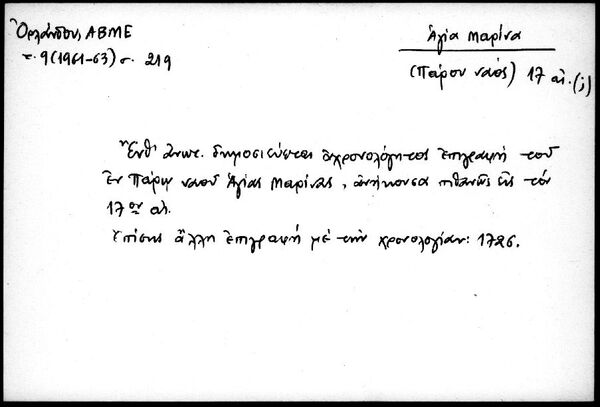 Ὀρλάνδου, ΑΒΜΕ
τ. 9 (1961-63) σ. 219
Ἁγία Μαρίνα
(Πάρου ναός) 17 αἰ. (;)
Ἔνθ' ἀνωτ. δημοσιεύεται ἀχρονολόγητος ἐπιγραφή τοῦ
ἐν Πάρῳ ναοῦ Ἁγίας Μαρίνας, ἀνήκουσα πιθανῶς εἰς τόν
17ον αἰ.
Ἐπίσης ἄλλη ἐπιγραφή μέ τήν χρονολογίαν: 1726.